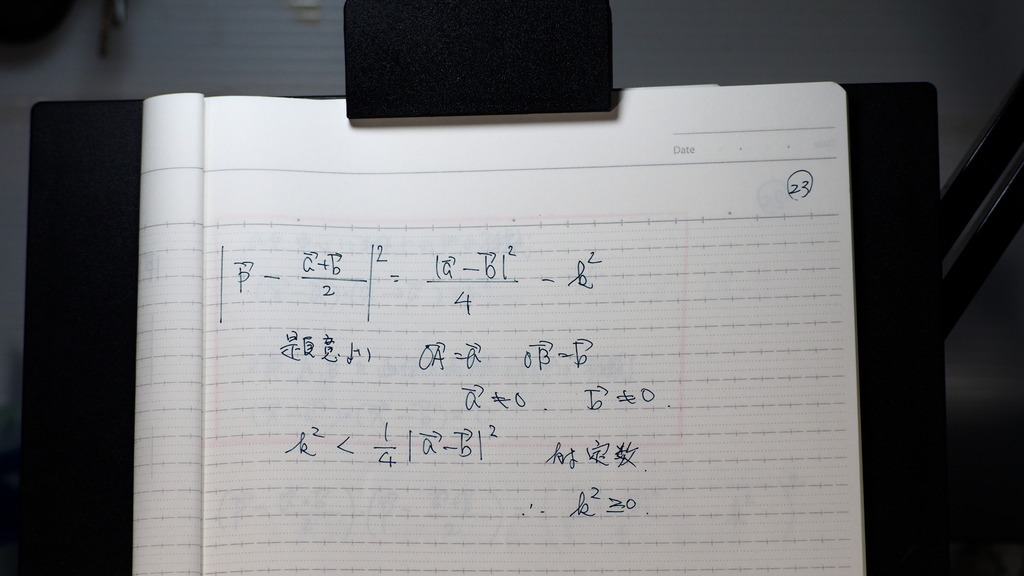 Date
23
|p⃗ − (a⃗+b⃗)/2|² = |a⃗ − b⃗|²/4 − k²
題意より OA⃗ = a⃗ OB⃗ = b⃗
a⃗ ≠ 0. b⃗ ≠ 0.
k² < 1/4 |a⃗ − b⃗|² kは定数.
∴ k² ≧ 0.